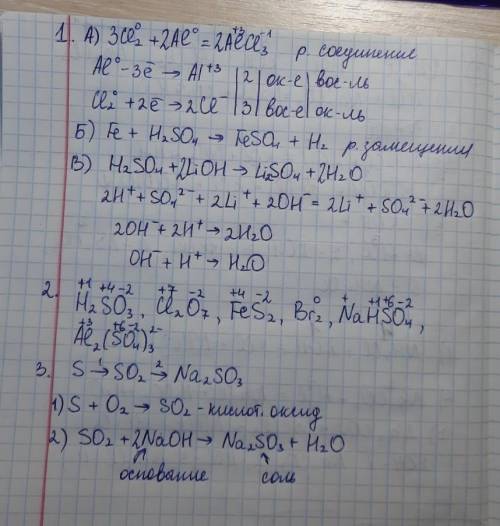 1. А) 3Cl₂⁰ + 2Al⁰ = 2Al⁺³Cl₃⁻¹ р. соединение
Al⁰ - 3ē → Al⁺³ | 2 | ок-е | вос-ль
Cl₂⁰ + 2ē → 2Cl⁻ | 3 | вос-е | ок-ль
Б) Fe + H₂SO₄ → FeSO₄ + H₂ р. замещения
В) H₂SO₄ + 2LiOH → Li₂SO₄ + 2H₂O
2H⁺ + SO₄²⁻ + 2Li⁺ + 2OH⁻ = 2Li⁺ + SO₄²⁻ + 2H₂O
2OH⁻ + 2H⁺ → 2H₂O
OH⁻ + H⁺ → H₂O
2. H₂⁺¹S⁺⁴O₃⁻², Cl₂⁺⁷O₇⁻², Fe⁺⁴S₂⁻², Br₂⁰, Na⁺H⁺¹S⁺⁶O₄⁻²,
Al₂⁺³(S⁺⁶O₄⁻²)₃²⁻
3. S →¹ SO₂ →² Na₂SO₃
1) S + O₂ → SO₂ - кислот. оксид
2) SO₂ + 2NaOH → Na₂SO₃ + H₂O
основание соль